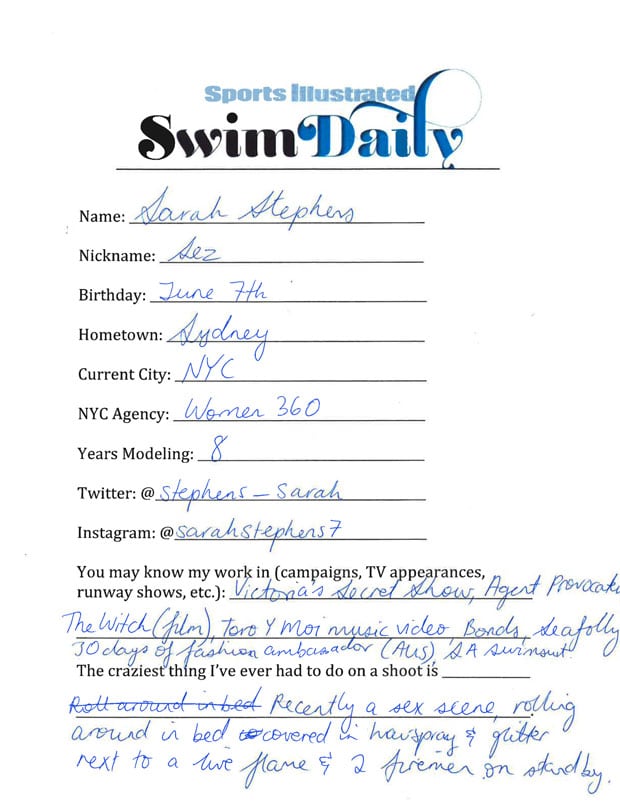 Sports Illustrated
Swim Daily
Name: Sarah Stephens
Nickname: Sez
Birthday: June 7th
Hometown: Sydney
Current City: NYC
NYC Agency: Women 360
Years Modeling: 8
Twitter: @ stephens_sarah
Instagram: @sarahstephens7
You may know my work in (campaigns, TV appearances,
runway shows, etc.): Victoria's Secret Show, Agent Provocate
The Witch (film), Toro Y Moi music video, Bonds, Seafolly
30 days of fashion ambasador (Aus), SA swimsuit
The craziest thing I've ever had to do on a shoot is
Roll around in bed Recently a sex scene, rolling
around in bed covered in hairspray & glitter
next to a live flame & 2 firemen on standby.